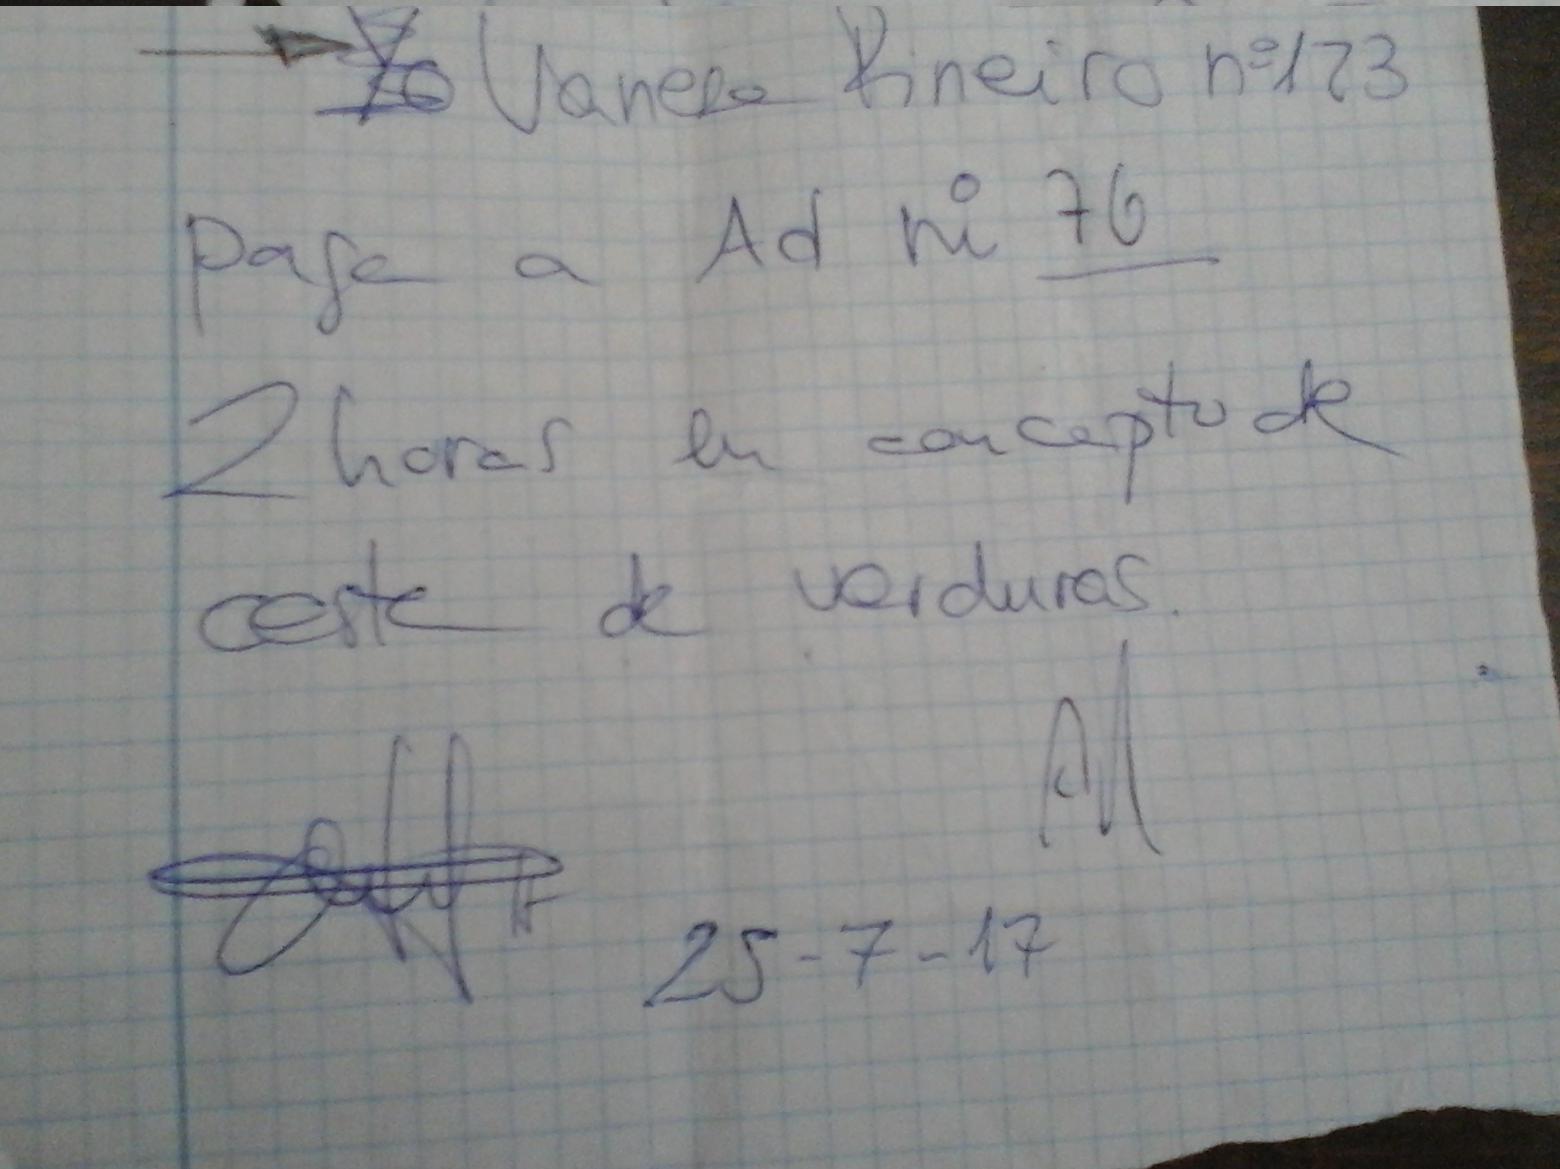 Yo Vanesa Pineiro nº 173
paga a Ad nº 76
2 horas en concepto de
cesta de verduras.
25-7-17